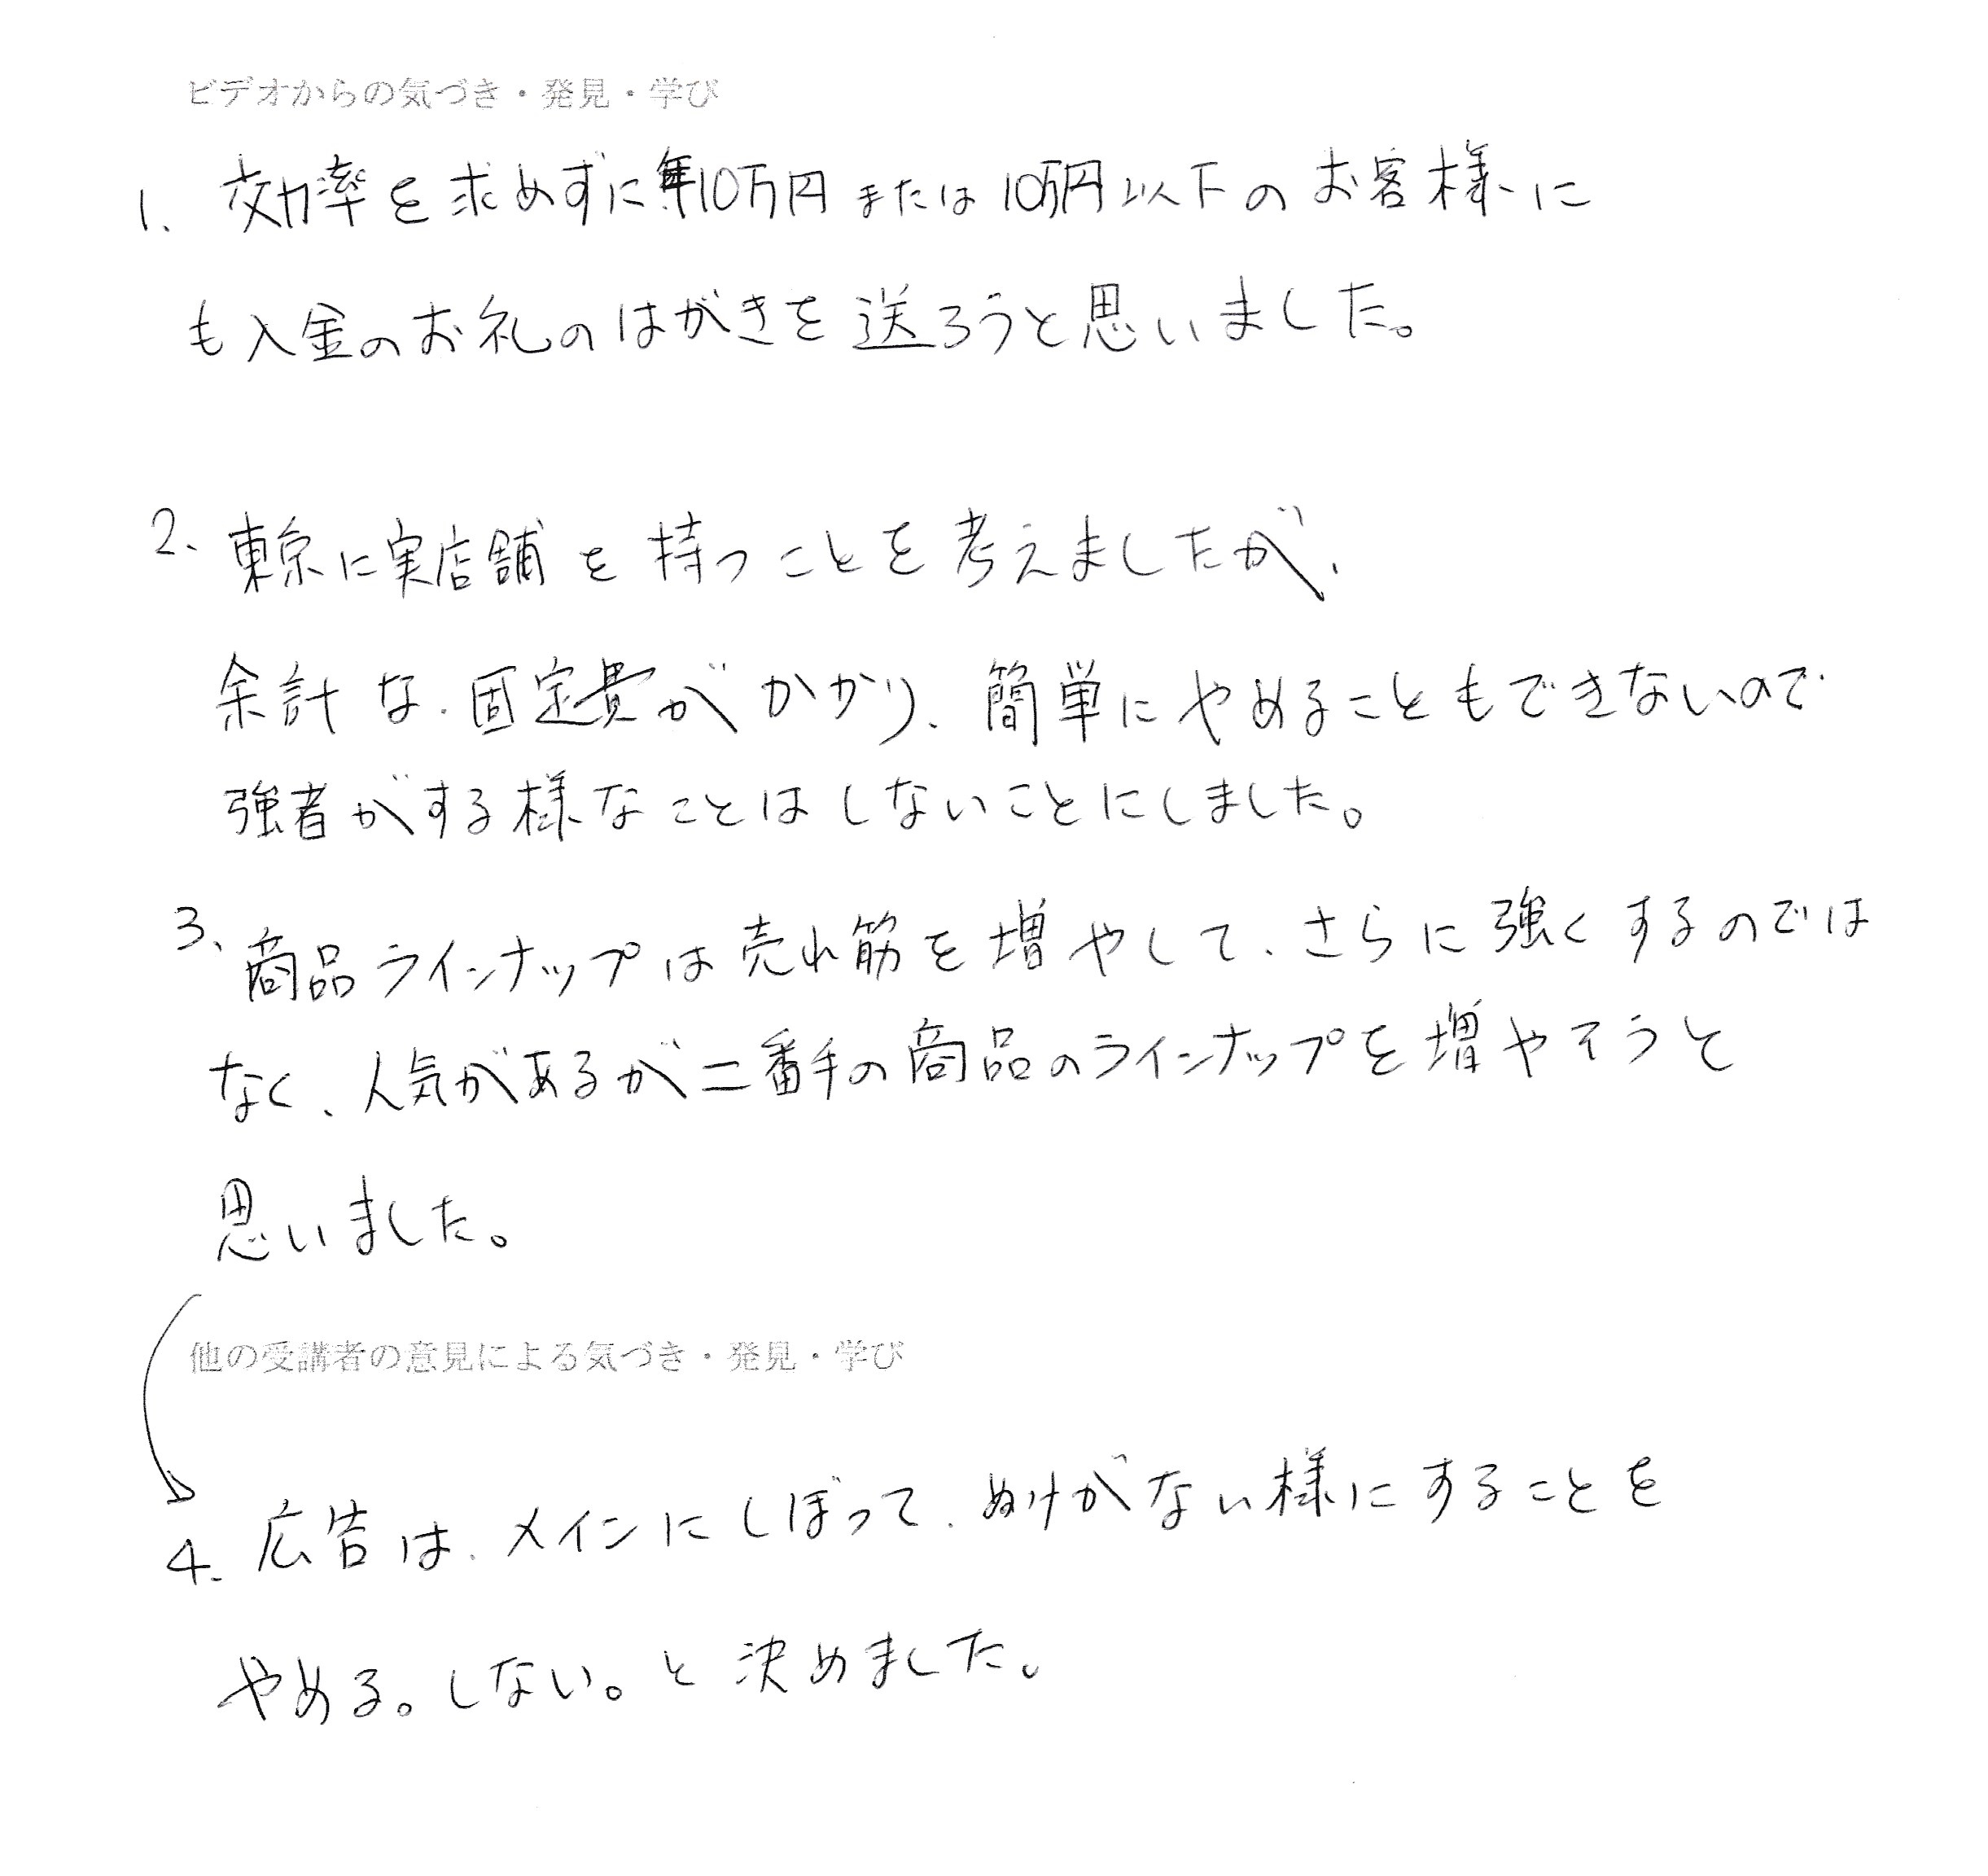 ビデオからの気づき・発見・学び
1. 効率を求めずに年10万円または10万円以下のお客様に
も入金のお礼のはがきを送ろうと思いました。
2. 東京に実店舗を持つことを考えましたが、
余計な固定費がかかり、簡単にやめることもできないので
強者がする様なことはしないことにしました。
3. 商品ラインナップは売れ筋を増やして、さらに強くするのでは
なく、人気があるが二番手の商品のラインナップを増やそうと
思いました。
他の受講者の意見による気づき・発見・学び
4. 広告は、メインにしぼって、ぬけがない様にすることを
やめる。しない。と決めました。